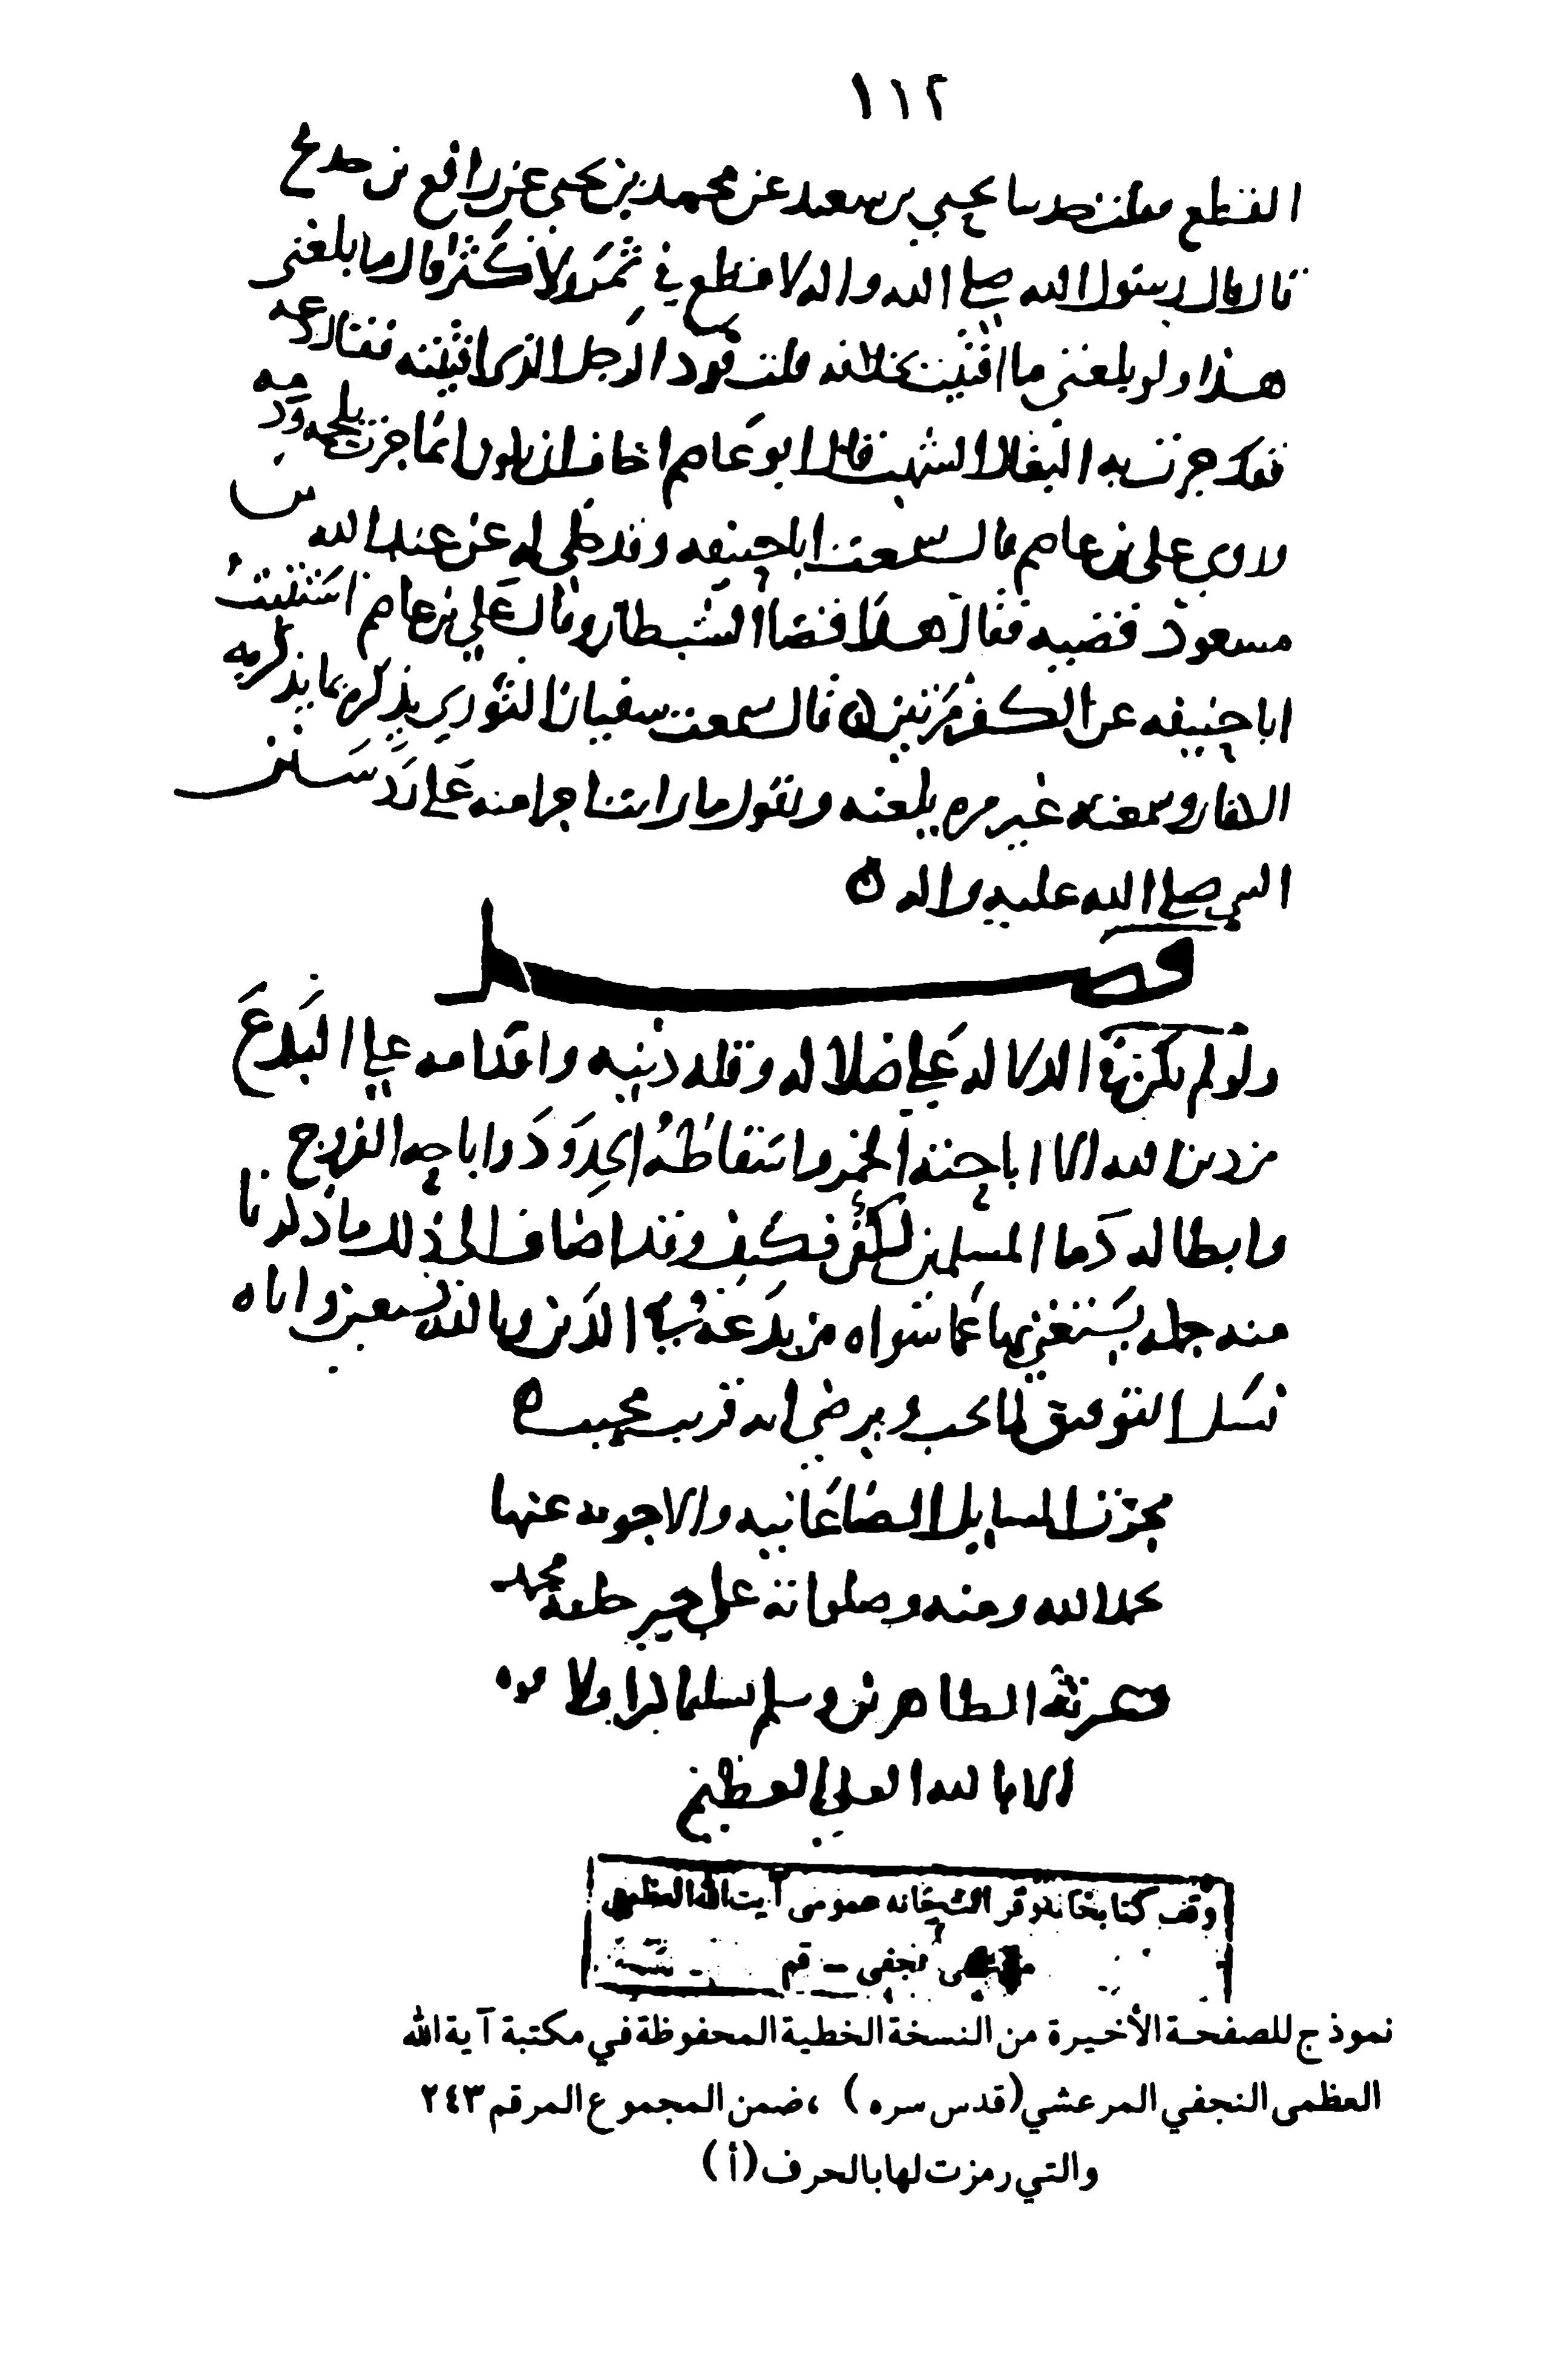 ١١٢
القطع فقلت حدثنا يحيى بن سعيد عن محمد بن يحيى عن رافع بن خديج
قال قال رسول الله صلى الله واله لا قطع في ثمر ولا كثر قال ما بلغني
هذا ولو بلغني ما افتيت بخلافه قلت فرد الرجل الذي افتيته فقال دعه
فقد جرت به البغال الشهب قال ابو عاصم اخاف ان يكون انما جرت بلحمه ودمه
علي بن عاصم قال سمعت ابا حنيفه وقد حكى له عن عبد الله بن
مسعود قضيه فقال هذا قضا الشيطان وقال علي بن عاصم استتيبت
ابا حنيفه عن الكفر مرتين ٥ قال سمعت سفيان الثوري يذكره بما يذكر به
الكفار وسمعته غير مره يلعنه ويقول ما رايت اجرا منه على رد سنن
النبي صلى الله عليه واله ٥
فصل
ولو لم يكن في الدلاله على ضلاله وقله دينه واقدامه على البدع
في دين الله الا اباحته الخمر واسقاطه الحدود واباحه الفروج
وابطاله دما المسلمين لكفى فكيف وقد اضاف الى ذلك ما ذكرنا
منه جمله يستغنى بها عما سواه من بدعه في الدين وبالله نستعين واياه
نسل التوفيق لما يحب ويرضى انه قريب مجيب ٥
نجزت المسايل الصاغانيه والاجوبه عنها
بحمد الله ومنه وصلواته على خير خلقه محمد
وعترته الطاهرين وسلم تسليما كثيرا ولا قوه
الا بالله العلي العظيم
وقف كتابخانه وقرائتخانه عمومى آيت الله العظمى
مرعشى نجفى - قم
نموذج للصفحة الأخيرة من النسخة الخطية المحفوظة في مكتبة آية الله
العظمى النجفي المرعشي (قدس سره) ، ضمن المجموع المرقم ٢٤٣
والتي رمزت لها بالحرف (أ)